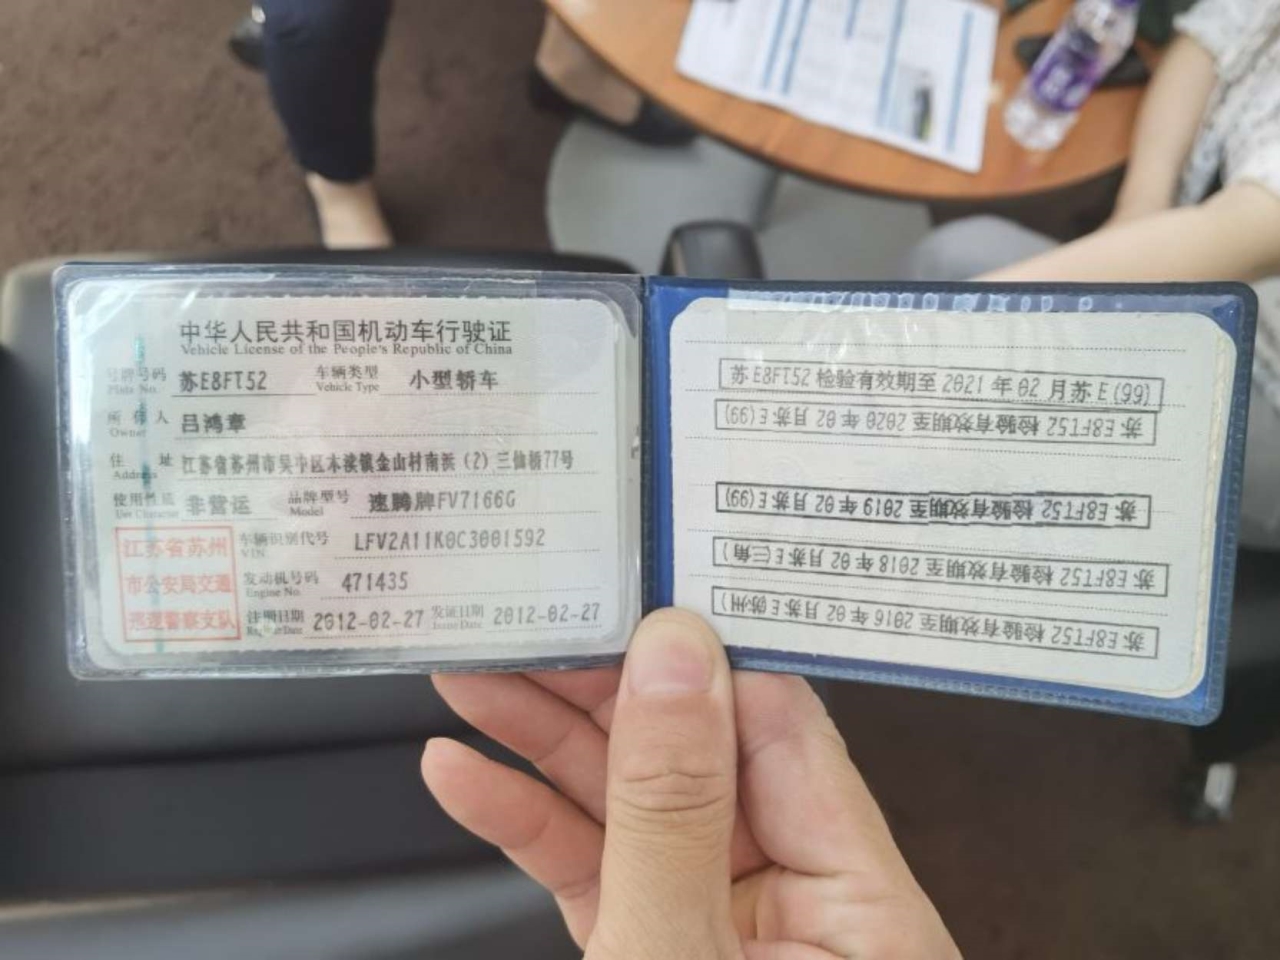 中华人民共和国机动车行驶证
Vehicle License of the People's Republic of China
号牌号码 苏E8FT52 车辆类型 小型轿车
Plate No. Vehicle Type
所有人 吕鸿章
Owner
住址 江苏省苏州市吴中区木渎镇金山村南浜(2)三仙桥77号
Address
使用性质 非营运 品牌型号 速腾牌FV7166G
Use Character Model
车辆识别代号 LFV2A11K0C3001592
VIN
发动机号码 471435
Engine No.
注册日期 2012-02-27 发证日期 2012-02-27
Register Date Issue Date
江苏省苏州
市公安局交通
巡逻警察支队
苏E8FT52 检验有效期至 2021 年 02 月苏E(99)
苏E8FT52 检验有效期至 2020 年 02 月苏E(99)
苏E8FT52 检验有效期至 2019 年 02 月苏E(99)
苏E8FT52 检验有效期至 2018 年 02 月苏E
苏E8FT52 检验有效期至 2016 年 02 月苏E(苏州)